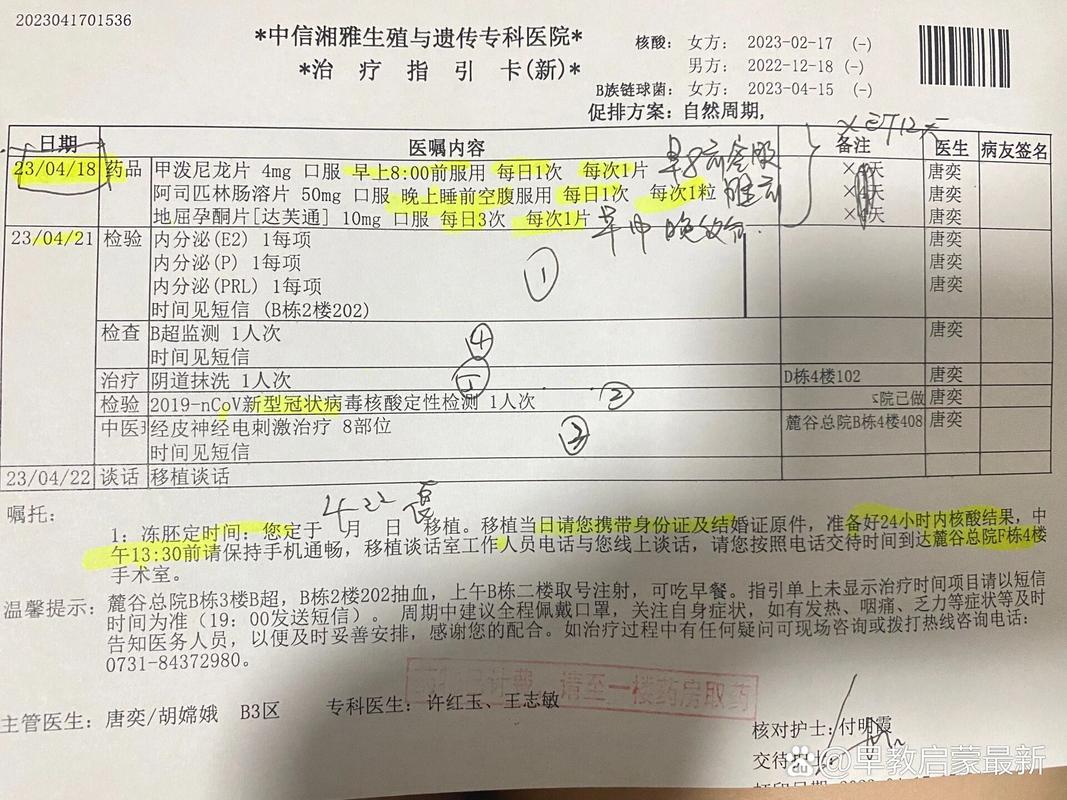 2023041701536
*中信湘雅生殖与遗传专科医院*
*治 疗 指 引 卡(新)*
核酸: 女方: 2023-02-17 (-)
男方: 2022-12-18 (-)
B族链球菌: 女方: 2023-04-15 (-)
促排方案: 自然周期,
日期 医嘱内容 备注 医生 病友签名
23/04/18 药品 甲泼尼龙片 4mg 口服 早上8:00前服用 每日1次 每次1片 唐奕
阿司匹林肠溶片 50mg 口服 晚上睡前空腹服用 每日1次 每次1粒 睡前 唐奕
地屈孕酮片[达芙通] 10mg 口服 每日3次 每次1片 早中晚饭前 唐奕
23/04/21 检验 内分泌(E2) 1每项 唐奕
内分泌(P) 1每项 ① 唐奕
内分泌(PRL) 1每项 唐奕
时间见短信 (B栋2楼202)
检查 B超监测 1人次 ④ 唐奕
时间见短信
治疗 阴道抹洗 1人次 D栋4楼102 唐奕
检验 2019-nCoV新型冠状病毒核酸定性检测 1人次 ② 院已做 唐奕
中医 经皮神经电刺激治疗 8部位 ③ 麓谷总院B栋4楼408 唐奕
时间见短信
23/04/22 谈话 移植谈话
嘱托:
4 22
1: 冻胚定时间: 您定于 月 日 移植。移植当日请您携带身份证及结婚证原件, 准备好24小时内核酸结果, 中
午13:30前请保持手机通畅, 移植谈话室工作人员电话与您线上谈话, 请您按照电话交待时间到达麓谷总院F栋4楼
手术室。
温馨提示: 麓谷总院B栋3楼B超, B栋2楼202抽血, 上午B栋二楼取号注射, 可吃早餐。指引单上未显示治疗时间项目请以短信
时间为准 (19: 00发送短信)。 周期中建议全程佩戴口罩, 关注自身症状, 如有发热、咽痛、乏力等症状等及时
告知医务人员, 以便及时妥善安排, 感谢您的配合。如治疗过程中有任何疑问可现场咨询或拨打热线咨询电话:
0731-84372980。
请至一楼药房取药
主管医生: 唐奕/胡嫦娥 B3区 专科医生: 许红玉、王志敏
核对护士: 付明霞
交待护士:
@早教启蒙最新